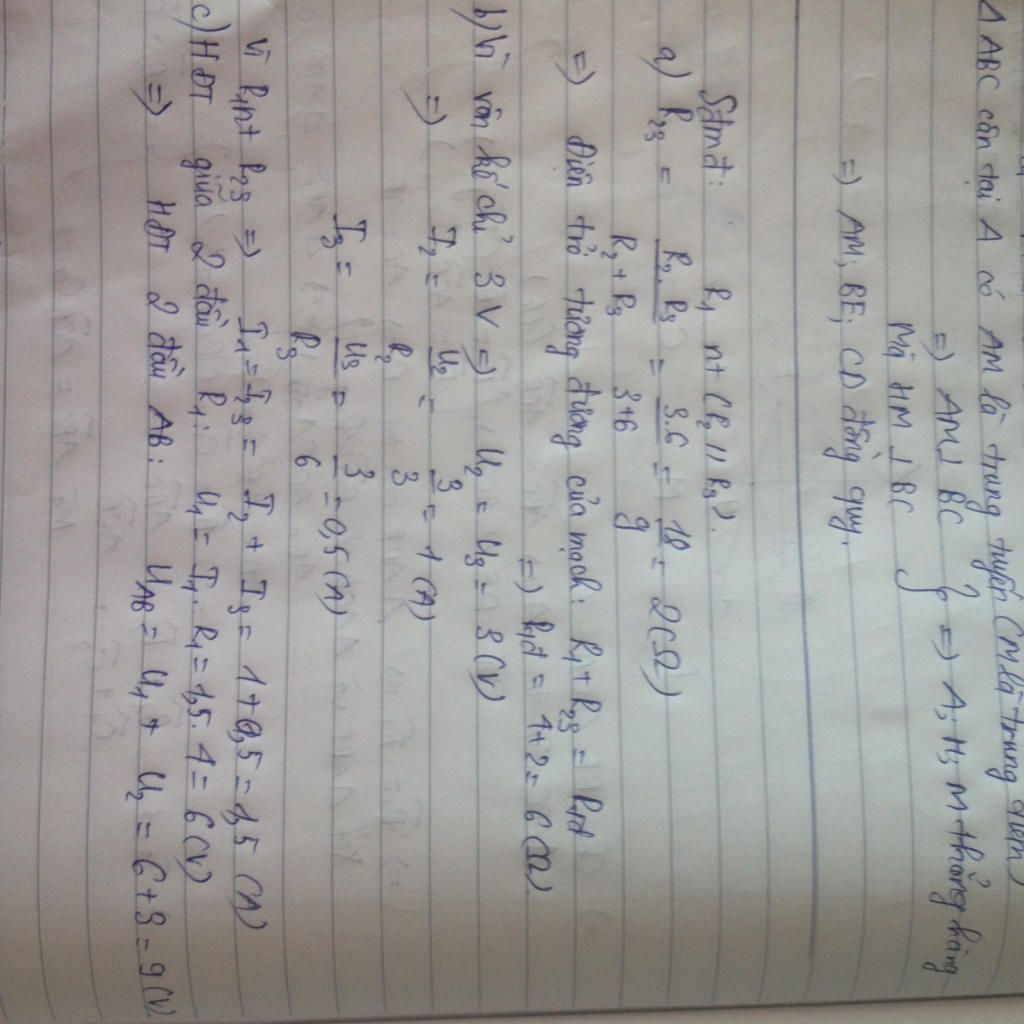 Δ ABC cân tại A có AM là trung tuyến (M là trung điểm)
=> AM ⊥ BC
Mà HM ⊥ BC } => A; H; M thẳng hàng
=> AM; BE; CD đồng quy.
Sđmđ: R1 nt (R2 // R3).
a) R23 = R2.R3 / R2+R3 = 3.6 / 3+6 = 18 / 9 = 2(Ω)
=> Điện trở tương đương của mạch: R1 + R23 = Rtđ
=> Rtđ = 4+2 = 6(Ω)
b) Vì vôn kế chỉ 3V => U2 = U3 = 3(V)
=> I2 = U2 / R2 = 3 / 3 = 1 (A)
I3 = U3 / R3 = 3 / 6 = 0,5(A)
Vì R1 nt R23 => I1 = I23 = I2 + I3 = 1+0,5 = 1,5 (A)
c) HĐT giữa 2 đầu R1: U1 = I1. R1 = 1,5. 4 = 6(V)
=> HĐT 2 đầu AB: UAB = U1 + U2 = 6+3 = 9(V)